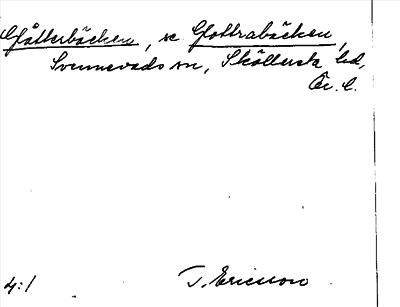 Glötterbäcken, se Glottrabäcken,
Svennevads sn, Sköllersta hd,
Ör. l.
4:1 T. Ericsson